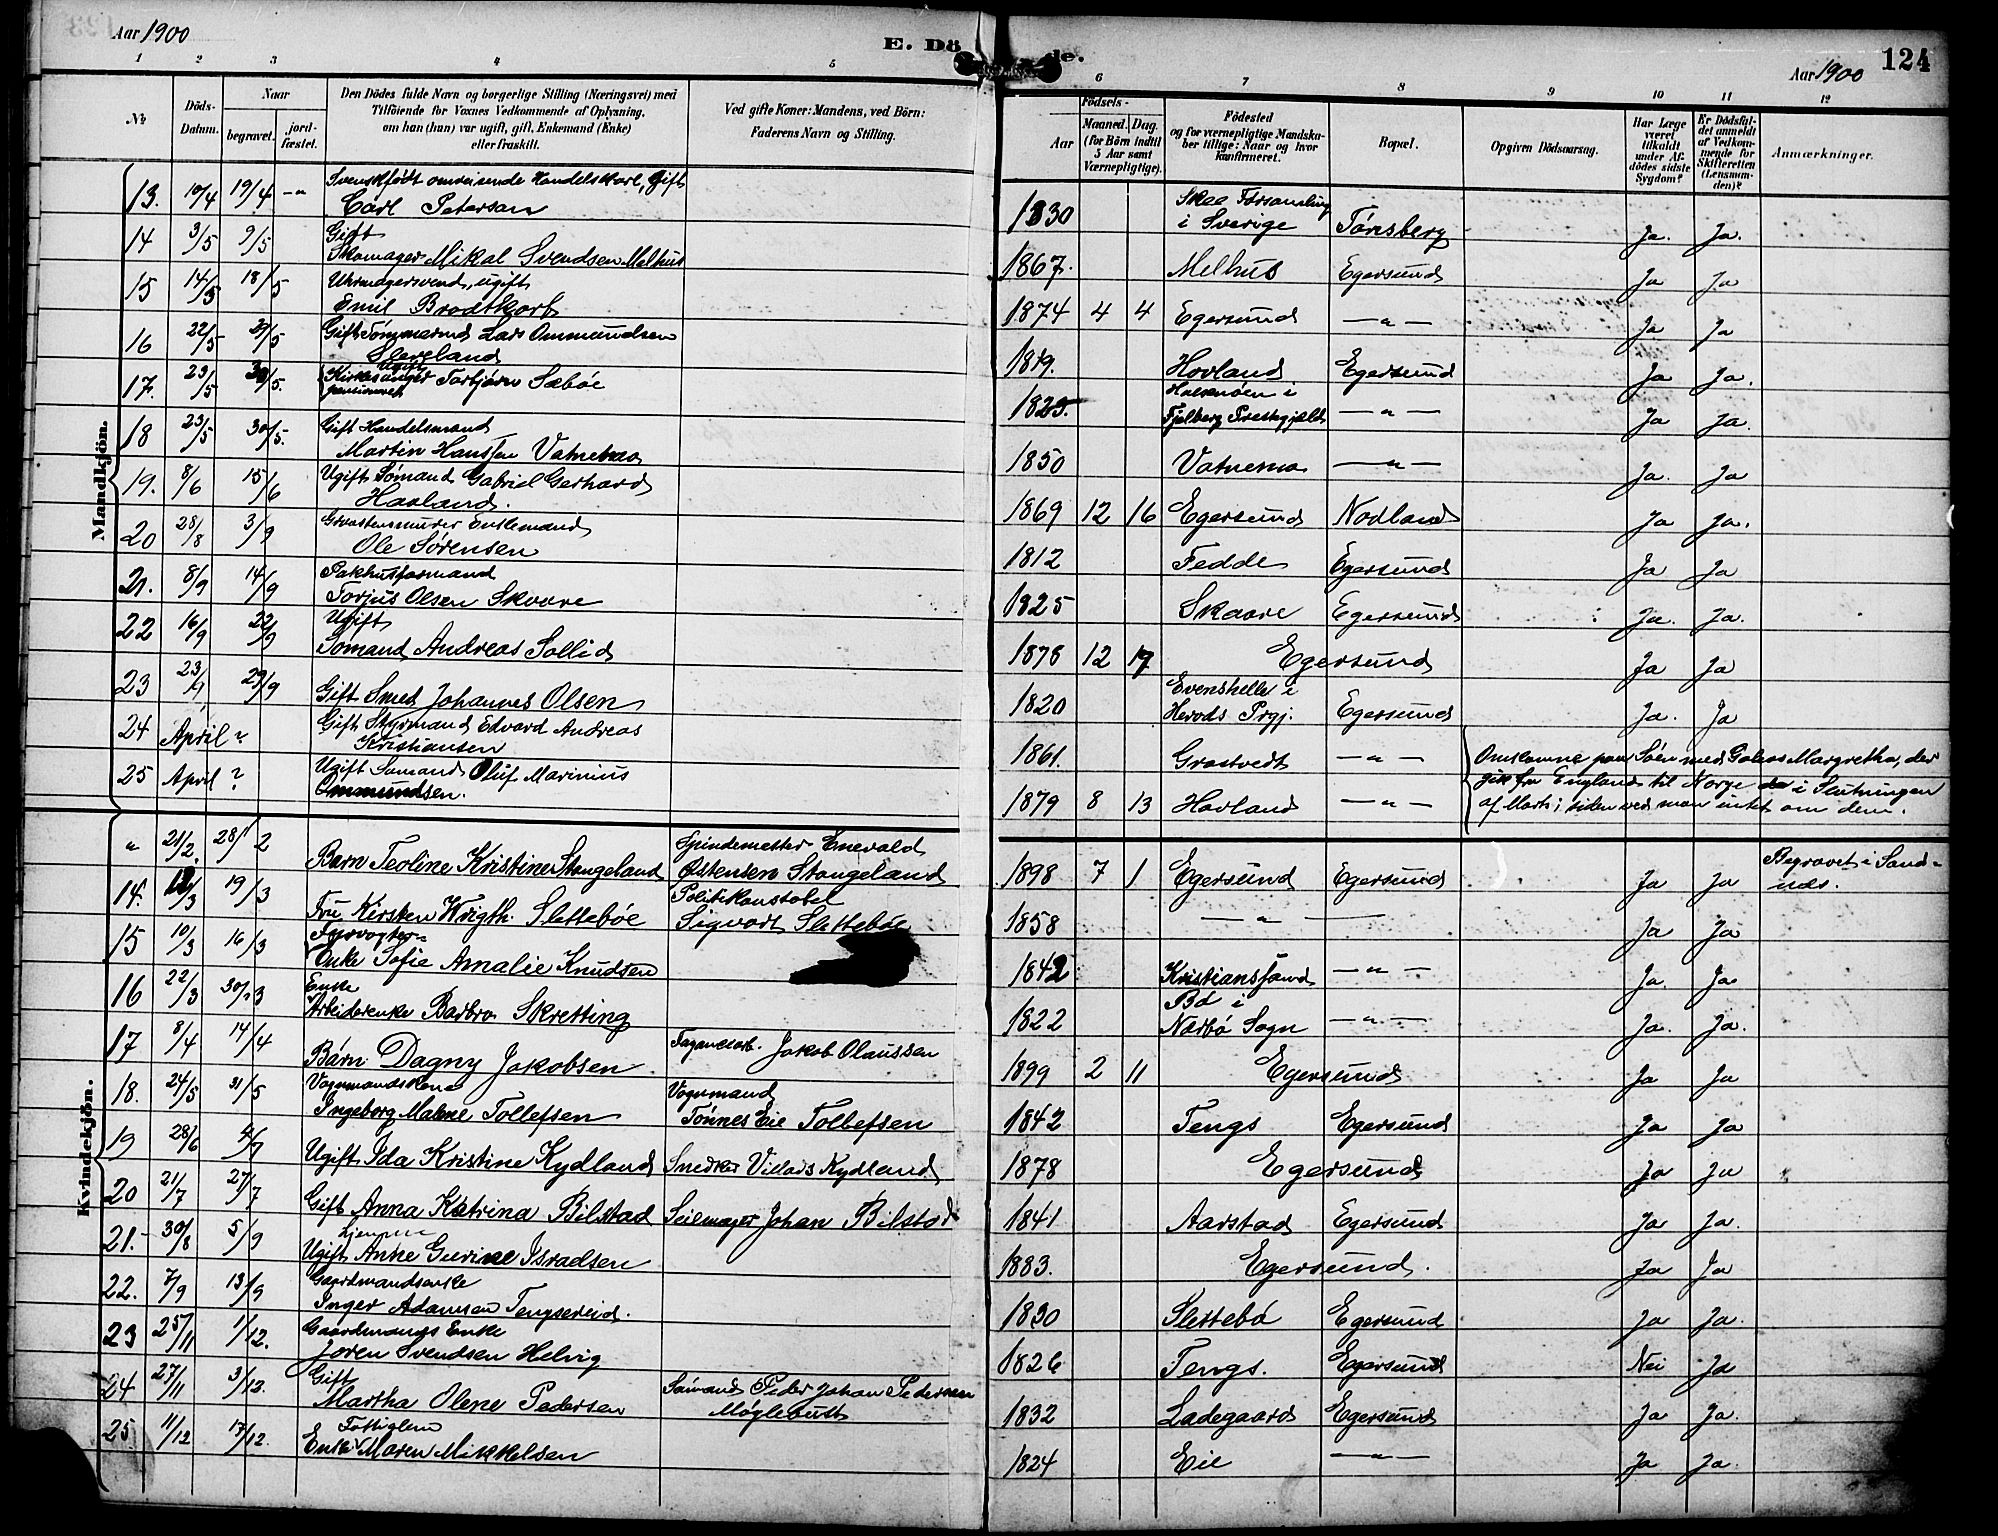 Aar 1900
E. Dö de.
Aar 1900
124
1 2 3 4 5 6 7 8 9 10 11 12
No
Döds-Datum.
Naar
begravet.
jord-fæstet.
Den Dödes fulde Navn og borgerlige Stilling (Næringsvei) med
Tilföiende for Voxnes Vedkommende af Oplysning,
om han (hun) var ugift, gift, Enkemand (Enke)
eller fraskilt.
Ved gifte Koner: Mandens, ved Börn:
Faderens Navn og Stilling.
Födsels-
Aar
Maaned. Dag.
(for Börn indtil
5 Aar samt
Værnepligtige).
Födested
og for værnepligtige Mandska-
ber tillige: Naar og hvor
konfirmeret.
Bopæl.
Opgiven Dödsaarsag.
Har Læge
været
tilkaldt
under Af-
dödes sidste
Sygdom?
Er Dödsfal-
det anmeldt
af Vedkom-
mende for
Skifteretten
(Lensman-
den)?
Anmærkninger.
Mandkjön.
13. 10/4 19/4 -"- Svenskfödt omreisende Handelskarl, Gift
Carl Peterson 1830 Skee Forsamling
i Sverige Tönsberg Ja. Ja.
14 3/5 9/5 Gift
Skomager Mikal Svendsen Melhus 1867. Melhus Egersund Ja Ja
15 14/5 18/5 Uhrmagersvend, ugift
Emil Brodtkorb 1874 4 4 Egersund —"— Ja Ja
16 22/5 27/5 Gift Tömmermd Lars Ommundsen
Sleveland 1819. Hovland Egersund Ja Ja.
17. 23/5 30/5. Ugift
Kirkesanger Torbjørn Sæbøe
pensioneret 1825. Halsenöen i
Fjelberg Prestegjæld —"— Ja Ja.
18 23/5 30/5. Gift Handelsmand
Martin Hanssen Vatnemo 1850 Vatnemo —"— Ja. Ja
19. 8/6 15/6 Ugift Sömand Gabriel Gerhard
Hovland. 1869 12 16 Egersund Nodland Ja Ja.
20 28/8 3/9 Graastensmurer Enkemand
Ole Sörensen 1812 Fedde Egersund Ja Ja
21. 8/9 14/9 Pakhusformand
Torjus Olsen Skaare 1825 Skaare Egersund Ja. Ja.
22 16/9 22/9 Ugift
Sömand Andreas Sollid 1878 12 17 Egersund Ja Ja
23 23/9 29/9 Gift Smed Johannes Olsen 1820 Evenshelle i
Herods Prgj. Egersund Ja. Ja
24 April? Gift Styrmand Edvard Andreas
Kristiansen 1861. Grostvedt —"— Omkomne paa Söen med Galeas Margretha, der
gik fra England til Norge i Slutningen
af Marts; siden ved man intet om dem.
25 April? Ugift Sömand Oluf Marinius
Ommundsen. 1879 8 13 Hovland —"—
Kvindekjön.
" 21/2. 28/2 Barn Teoline Kristine Stangeland Spindemester Enevald
Østensen Stangeland 1898 7 1 Egersund Egersund Ja Ja Begravet i Sand-
næs.
14. 12/3 19/3 Fru Kirsten Wrigth Slettebøe Politikonstabel
Sigvart Slettebøe 1858 —"— Ja Ja
15 10/3 16/3 Fyrvogter-
Enke Sofie Amalie Knudsen 1842 Kristianssand —"— Ja. Ja
16 22/3 30/3 Enke
Arbeiderenke Barbro Skretting 1822 Bö i
Nærbö Sogn —"— Ja. Ja.
17 8/4 14/4 Barn Dagny Jakobsen Fayancearb. Jakob Olaussen 1899 2 11 Egersund Ja Ja
18. 24/5 31/5 Vognmandskone
Ingeborg Malene Tollefsen Vognmand
Tönnes Eie Tollefsen 1842 Tengs Egersund Ja Ja
19 28/6 4/7 Ugift Ida Kristine Kydland Snedker Villads Kydland. 1878 Egersund Ja Ja
20 21/7 27/7 Gift Anna Katrina Bilstad Seilmager Johan Bilstad 1841 Aarstad Egersund Ja Ja.
21.- 30/8 5/9 Ugift Anne Gurine Israelsen 1883. Egersund. Ja Ja
22. 7/9 13/9 Gaardmandsenke
Inger Adamsen Tengsereid. 1830 Slettebö Egersund Ja Ja.
23 25/11 1/12. Gaardmands Enke
Joren Svendsen Helvig 1826 Tengs. Egersund Nei Ja
24 27/11 3/12. Gift
Martha Olene Pedersen Sömand Peder Johan Pedersen
Møglebust 1832 Ladegaard Egersund Ja Ja.
25 11/12 17/12. Fattiglem
Enke Maren Mikkelsen 1824 Eie —"— Ja Ja.